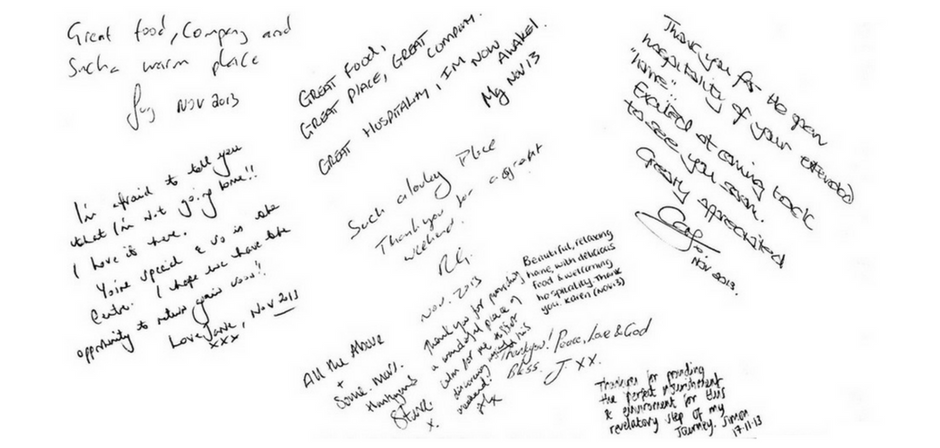 Great food, Company and
Such a warm place
NOV 2013
GREAT FOOD,
GREAT PLACE, GREAT COMPANY.
GREAT HOSPITALITY, I'M NOW AWAKE!
NOV 13
Thank you for the open
hospitality of your extended
"home".
Excited at coming back
to see you soon.
Greatly appreciated
NOV 2013.
I'm afraid to tell you
that I'm not going home!!
I love it here.
You're special & so is the
Centre. I hope we have the
opportunity to return again soon!!
Love Jane, Nov 2013
xxx
Such a lovely Place
Thank you for a great
weekend.
R.G.
NOV. 2013
Beautiful, relaxing
home, with delicious
food & welcoming
hospitality. Thank
you. Karen (Nov.13)
Thank you for providing
a wonderful place of
calm for me
discovering this
weekend!
All the Above
+
Some. more.
thankyous
x.
Thankyou! Peace, Love & God
Bless. J. XX.
Thankyou for providing
the perfect nourishment
& environment for this
revelatory step of my
Journey. Simon
17-11-13